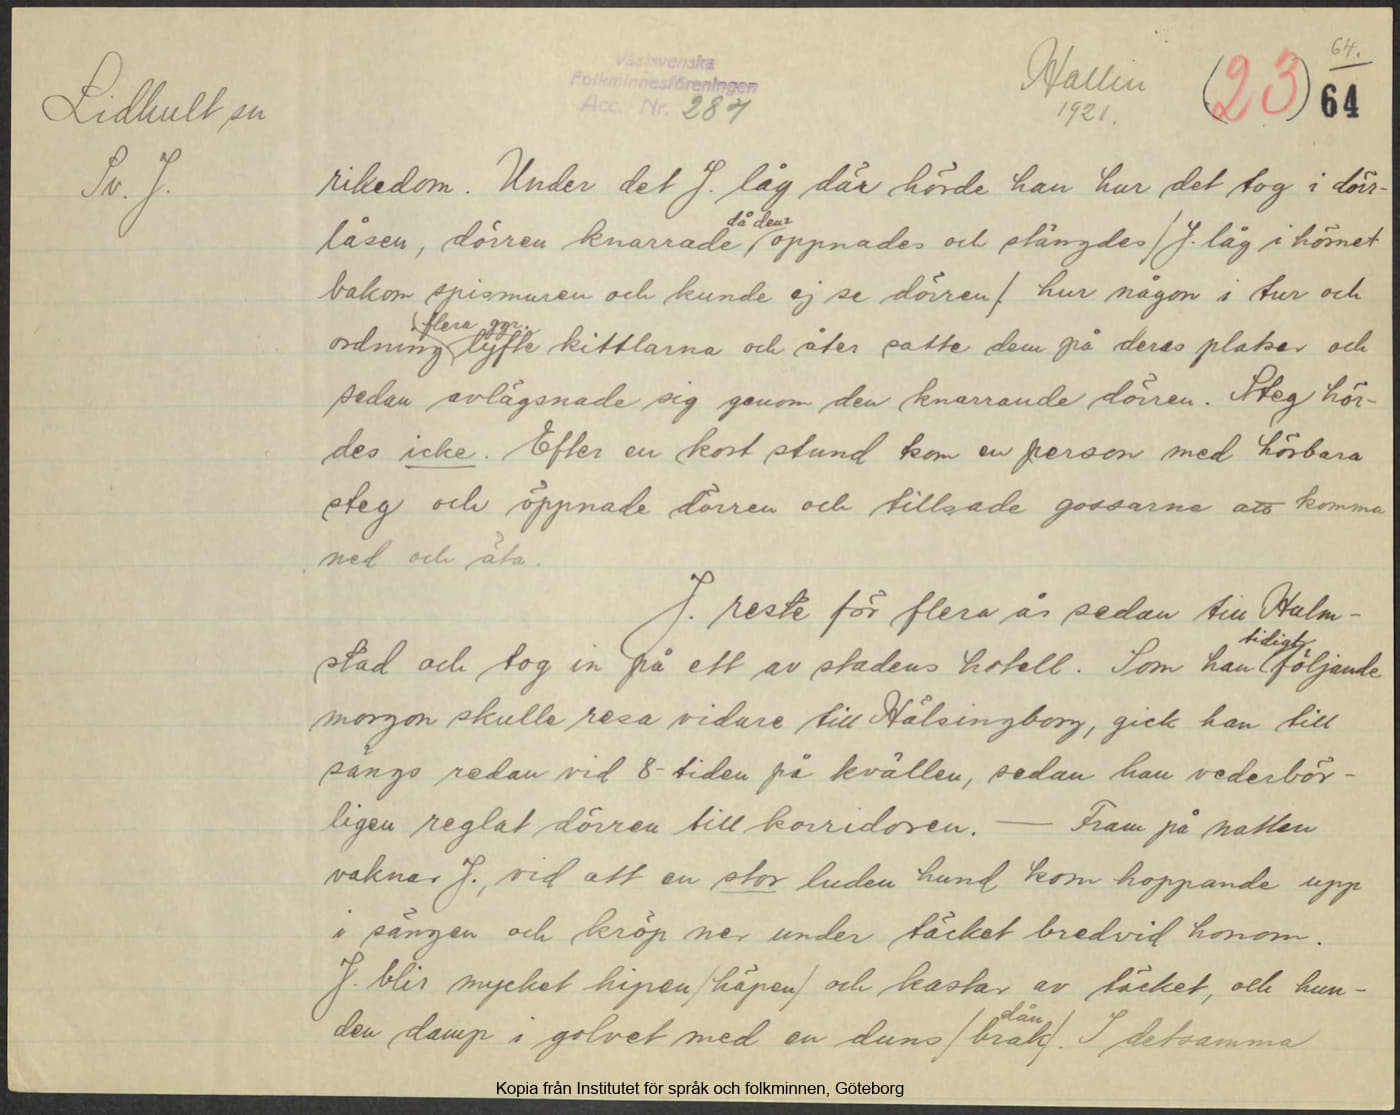 Lidhult sn
Sv. J.
Västsvenska
Folkminnesföreningen
Acc. Nr. 287
Hallin
1921.
(23)
64.
64
rikedom. Under det J. låg där hörde han hur det tog i dörr-
låsen, dörren knarrade då den öppnades och stängdes /J. låg i hörnet
bakom spismuren och kunde ej se dörren/ hur någon i tur och
ordning flera ggr. lyfte kittlarna och åter satte dem på deras platser och
sedan avlägsnade sig genom den knarrande dörren. Steg hör-
des icke. Efter en kort stund kom en person med hörbara
steg och öppnade dörren och tillsade gossarne att komma
ned och äta.
J. reste för flera år sedan till Halm-
stad och tog in på ett av stadens hotell. Som han tidigt följande
morgon skulle resa vidare till Hälsingborg, gick han till
sängs redan vid 8-tiden på kvällen, sedan han vederbör-
ligen reglat dörren till korridoren. — Fram på natten
vaknar J., vid att en stor luden hund kom hoppande upp
i sängen och kröp ner under täcket bredvid honom.
J. blir mycket hipen /häpen/ och kastar av täcket, och hun-
den damp i golvet med en duns /dån brak/. I detsamma
Kopia från Institutet för språk och folkminnen, Göteborg